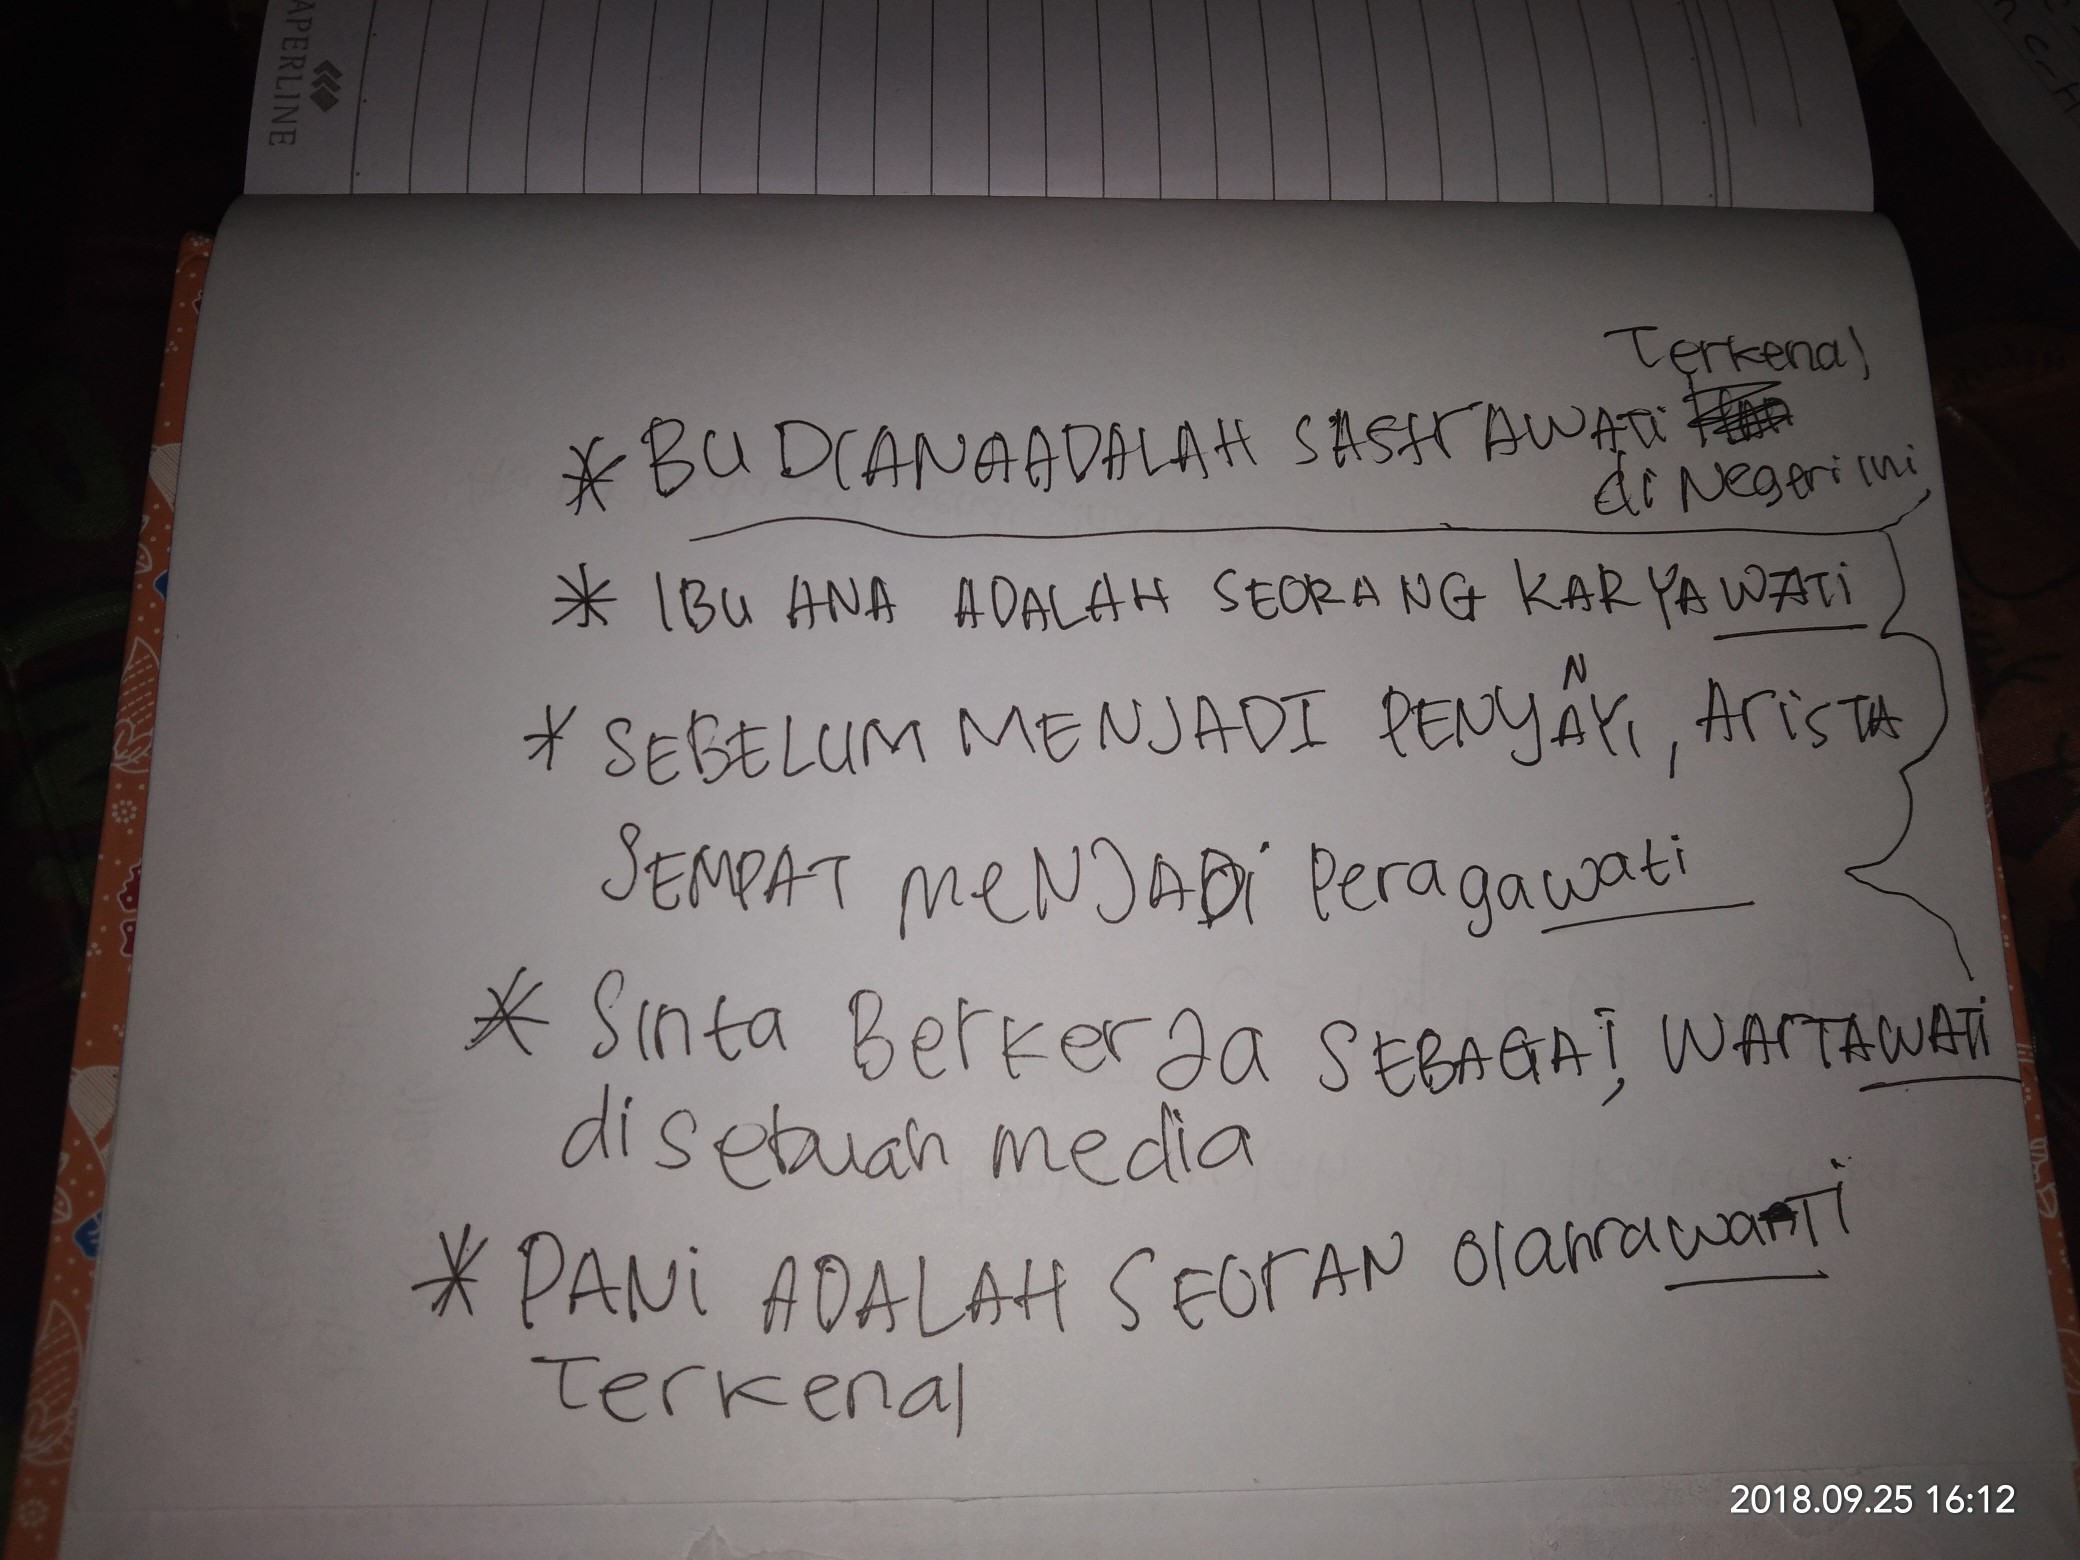 APERLINE
Terkenal
* BU DIANA ADALAH SASTRAWATi
di Negeri ini
* IBU ANA ADALAH SEORANG KARYAWATi
N
* SEBELUM MENJADI PENYAYI, ArisTA
SEMPAT MeNJADi Peragawati
* Sinta Berkerja SEBAGAi, WArTAWATi
di sebuah media
* PANi ADALAH SEOrAN olahrawaTi
Terkenal
2018.09.25 16:12